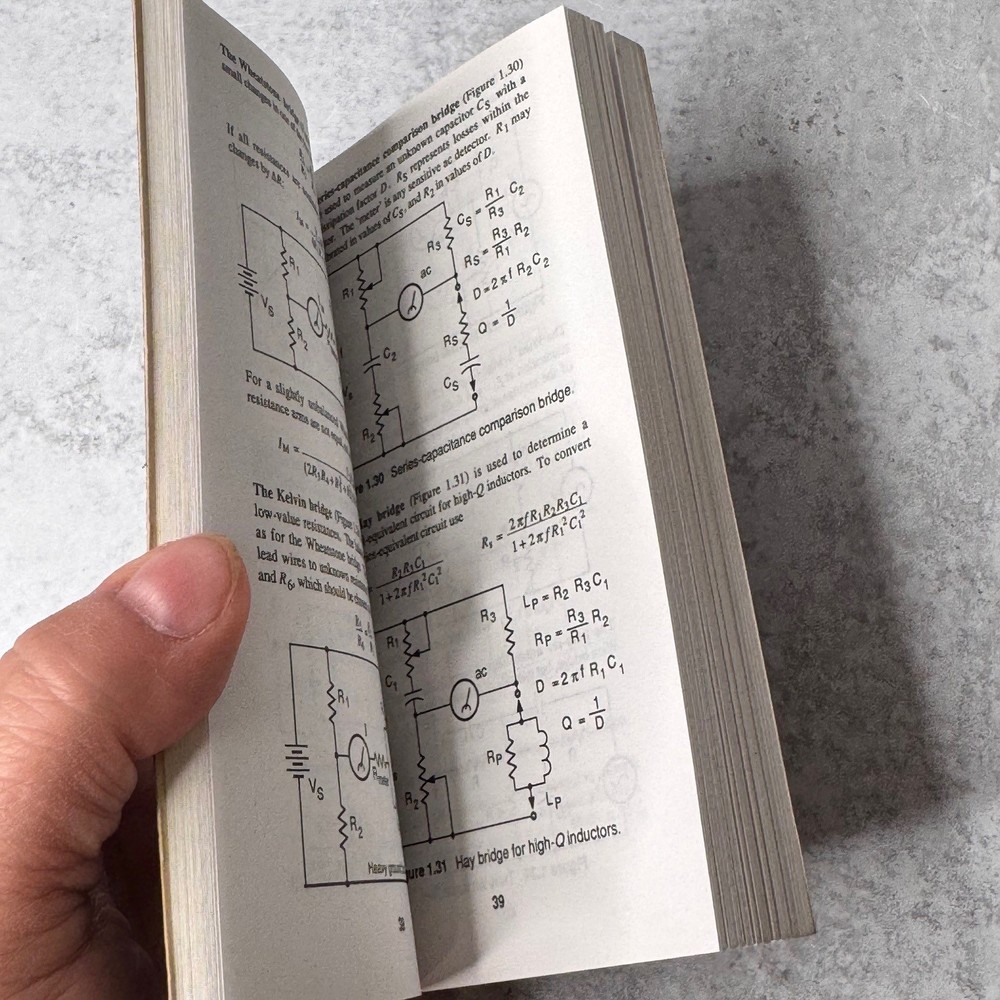 The Wheatstone bridge
small changes in one of
If all resistances are
changes by ΔR:
R1
VS
R2
For a slightly unbalanced
resistance arms are not equal
IM =
The Kelvin bridge (Figure
low-value resistances. The
as for the Wheatstone bridge
lead wires to unknown
and R6, which should be
R1
I
VS
Rmeter
R2
Heavy ground
series-capacitance comparison bridge (Figure 1.30)
used to measure an unknown capacitor CS with a
dissipation factor D. RS represents losses within the
The "meter" is any sensitive ac detector. R1 may
in values of CS, and R2 in values of D.
R1
R3
ac
C2
RS
CS
R2
CS = R1/R3 C2
RS = R3/R1 R2
D=2πf R2C2
Q = 1/D
1.30 Series-capacitance comparison bridge.
Hay bridge (Figure 1.31) is used to determine a
-equivalent circuit for high-Q inductors. To convert
-equivalent circuit use
R2R3C1 / 1+2πfR1²C1²
Rs = 2πfR1R2R3C1 / 1+2πfR1²C1²
R1
R3
C1
ac
R2
RP
LP
LP = R2 R3C1
RP = R3/R1 R2
D =2πf R1C1
Q = 1/D
ure 1.31 Hay bridge for high-Q inductors.
39